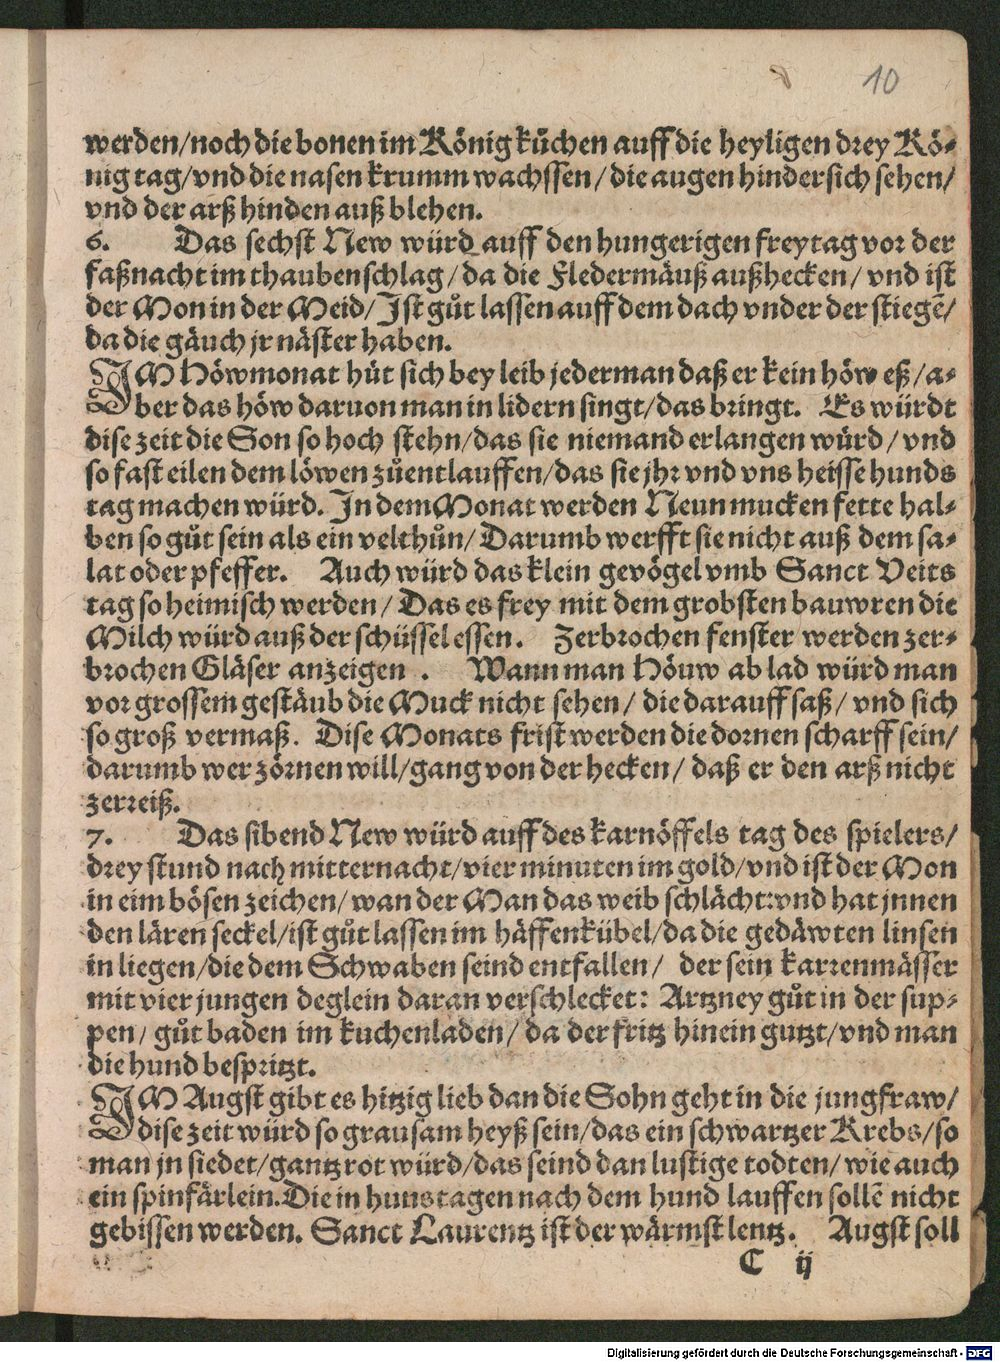 10
werden/noch die bonen im Königkuͤchen auff die heyligen drey Kö-
nig tag/vnd die nasen krumm wachssen/die augen hindersich sehen/
vnd der arß hinden auß blehen.
6. Das sechst New würd auff den hungerigen freytag vor der
faßnacht im thaubenschlag/da die Fledermäuß außhecken/vnd ist
der Mon in der Meid/Ist guͦt lassen auff dem dach vnder der stiegē/
da die gäuch jr näster haben.
IM Höwmonat huͤt sich bey leib jederman daß er kein höw eß/a-
ber das höw daruon man in lidern singt/das bringt. Es würdt
dise zeit die Son so hoch stehn/das sie niemand erlangen würd/vnd
so fast eilen dem löwen zuͦentlauffen/das sie jhr vnd vns heisse hunds
tag machen würd. In dem Monat werden Neun mucken fette hal-
ben so guͦt sein als ein velthuͦn/Darumb werfft sie nicht auß dem sa-
lat oder pfeffer. Auch würd das klein gevögel vmb Sanct Veits
tag so heimisch werden/Das es frey mit dem grobsten bauwren die
Milch würd auß der schüssel essen. Zerbrochen fenster werden zer-
brochen Gläser anzeigen. Wann man Höuw ab lad würd man
vor grossem gestäub die Muck nicht sehen/die darauff saß/vnd sich
so groß vermaß. Dise Monats frist werden die dornen scharff sein/
darumb wer zörnen will/gang von der hecken/daß er den arß nicht
zerreiß.
7. Das sibend New würd auff des karnöffels tag des spielers/
drey stund nach mitternacht/vier minuten im gold/vnd ist der Mon
in eim bösen zeichen/wan der Man das weib schlächt:vnd hat jnnen
den lären seckel/ist guͦt lassen im häffenkübel/da die gedäwten linsen
in liegen/die dem Schwaben seind entfallen/ der sein karrenmässer
mit vier jungen deglein daran verschlecket: Artzney guͦt in der sup-
pen/guͦt baden im kuchenladen/da der fritz hinein gutzt/vnd man
die hund bespritzt.
IM Augst gibt es hitzig lieb dan die Sohn geht in die jungfraw/
dise zeit würd so grausam heyß sein/das ein schwartzer Krebs/so
man jn siedet/gantz rot würd/das seind dan lustige todten/wie auch
ein spinfärlein. Die in hunstagen nach dem hund lauffen sollē nicht
gebissen werden. Sanct Laurentz ist der wärmst lentz. Augst soll
C ij
Digitalisierung gefördert durch die Deutsche Forschungsgemeinschaft - DFG